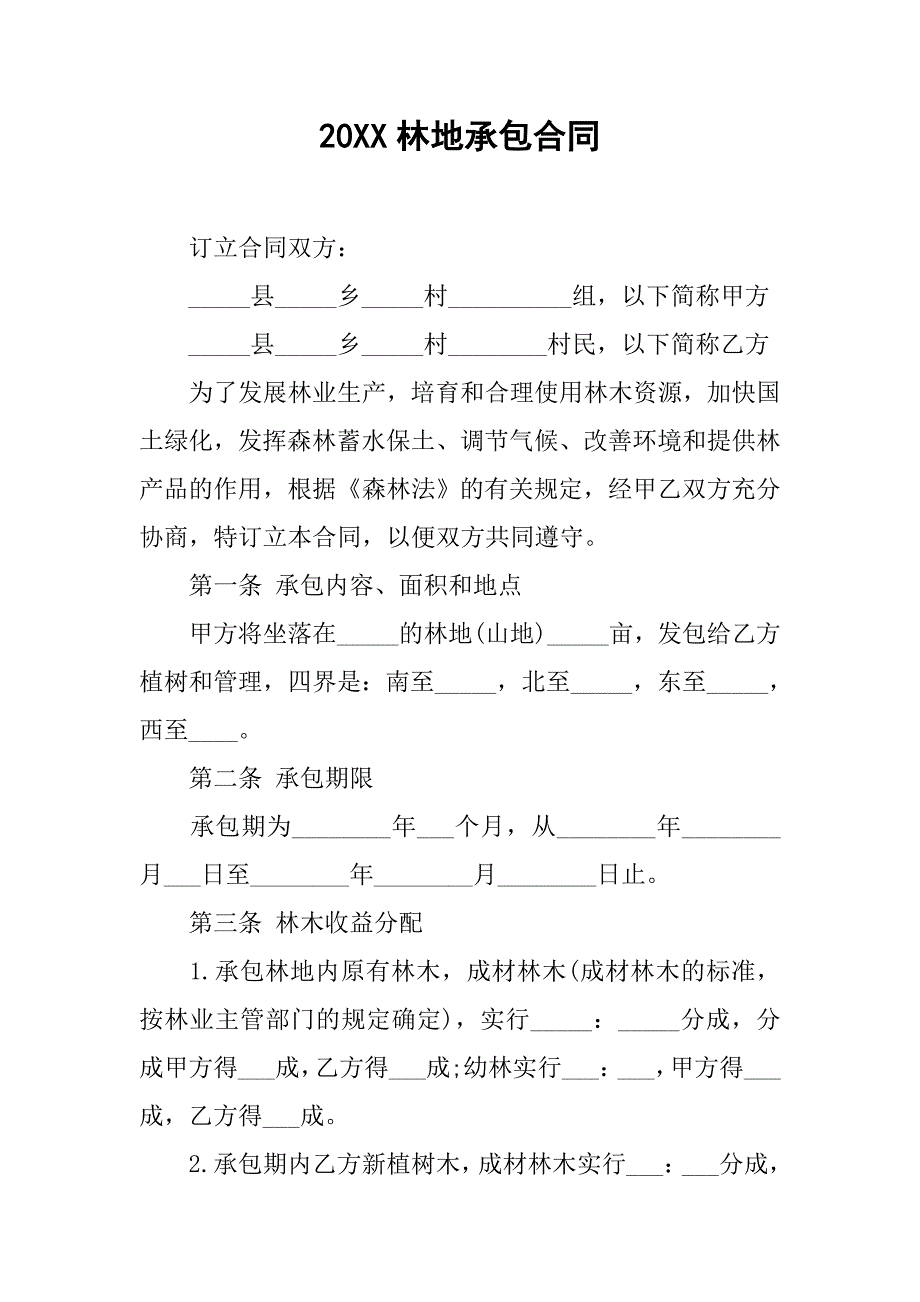 20XX 林地承包合同
订立合同双方：
_____县_____乡_____村__________组，以下简称甲方
_____县_____乡_____村________村民，以下简称乙方
为了发展林业生产，培育和合理使用林木资源，加快国
土绿化，发挥森林蓄水保土、调节气候、改善环境和提供林
产品的作用，根据《森林法》的有关规定，经甲乙双方充分
协商，特订立本合同，以便双方共同遵守。
第一条 承包内容、面积和地点
甲方将坐落在_____的林地(山地)_____亩，发包给乙方
植树和管理，四界是：南至_____，北至_____，东至_____，
西至____。
第二条 承包期限
承包期为________年___个月，从________年________
月___日至________年________月________日止。
第三条 林木收益分配
1.承包林地内原有林木，成材林木(成材林木的标准，
按林业主管部门的规定确定)，实行_____：_____分成，分
成甲方得___成，乙方得___成;幼林实行___：___，甲方得___
成，乙方得___成。
2.承包期内乙方新植树木，成材林木实行___：___分成，